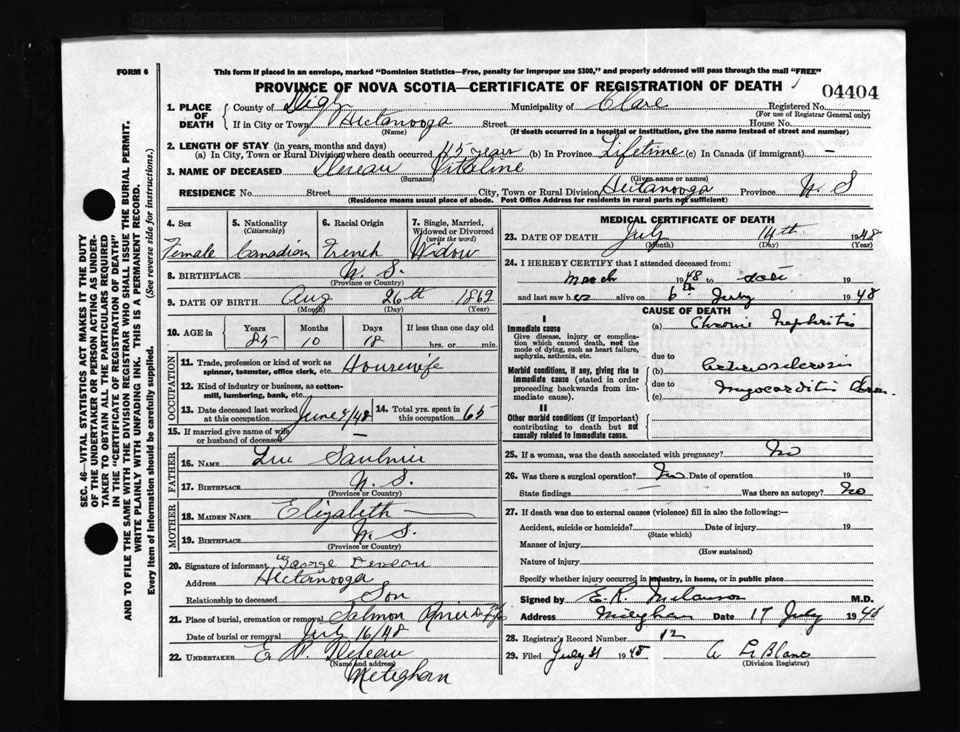 FORM 6
This form if placed in an envelope, marked "Dominion Statistics—Free, penalty for improper use $300," and properly addressed will pass through the mail "FREE"
PROVINCE OF NOVA SCOTIA—CERTIFICATE OF REGISTRATION OF DEATH
04404
SEC. 46—VITAL STATISTICS ACT MAKES IT THE DUTY
OF THE UNDERTAKER OR PERSON ACTING AS UNDER-
TAKER TO OBTAIN ALL THE PARTICULARS REQUIRED
IN THE "CERTIFICATE OF REGISTRATION OF DEATH"
AND TO FILE THE SAME WITH THE DIVISION REGISTRAR WHO SHALL ISSUE THE BURIAL PERMIT.
WRITE PLAINLY WITH UNFADING INK. THIS IS A PERMANENT RECORD.
Every item of Information should be carefully supplied. (See reverse side for instructions.)
1. PLACE OF DEATH County of Digby Municipality of Clare Registered No.
(For use of Registrar General only)
If in City or Town Hectanooga Street House No.
(Name) (If death occurred in a hospital or institution, give the name instead of street and number)
2. LENGTH OF STAY (in years, months and days)
(a) In City, Town or Rural Division where death occurred 45 years (b) In Province Lifetime (c) In Canada (if immigrant) —
3. NAME OF DECEASED Deveau Vitaline
(Surname) (Given name or names)
RESIDENCE No. Street City, Town or Rural Division Hectanooga Province N. S
(Residence means usual place of abode. Post Office Address for residents in rural parts not sufficient)
4. Sex Female
5. Nationality (Citizenship) Canadian
6. Racial Origin French
7. Single, Married, Widowed or Divorced (write the word) Widow
8. BIRTHPLACE N. S.
(Province or Country)
9. DATE OF BIRTH Aug 26th 1862
(Month) (Day) (Year)
10. AGE in Years 85 Months 10 Days 18 If less than one day old hrs. or min.
OCCUPATION
11. Trade, profession or kind of work as spinner, teamster, office clerk, etc. Housewife
12. Kind of industry or business, as cotton-mill, lumbering, bank, etc.
13. Date deceased last worked at this occupation June /48 14. Total yrs. spent in this occupation 65
15. If married give name of wife or husband of deceased —
FATHER
16. NAME Luc Saulnier
17. BIRTHPLACE N. S.
(Province or Country)
MOTHER
18. MAIDEN NAME Elizabeth —
19. BIRTHPLACE N. S.
(Province or Country)
20. Signature of informant George Deveau
Address Hectanooga
Relationship to deceased Son
21. Place of burial, cremation or removal Salmon River
Date of burial or removal July 16/48
22. UNDERTAKER E. Deveau
(Name and address)
Meteghan
MEDICAL CERTIFICATE OF DEATH
23. DATE OF DEATH July 14th 1948
(Month) (Day) (Year)
24. I HEREBY CERTIFY that I attended deceased from:
March 1948 to date 19
and last saw her alive on 6th July 1948
CAUSE OF DEATH
I
Immediate cause
Give disease, injury or complication which caused death, not the mode of dying, such as heart failure, asphyxia, asthenia, etc.
(a) Chronic Nephritis
due to
Morbid conditions, if any, giving rise to immediate cause (stated in order proceeding backwards from immediate cause).
(b) Arteriosclerosis
due to
(c) Myocarditis Chron.
II
Other morbid conditions (if important) contributing to death but not causally related to immediate cause.
25. If a woman, was the death associated with pregnancy? No
26. Was there a surgical operation? No Date of operation 19
State findings Was there an autopsy? No
27. If death was due to external causes (violence) fill in also the following:—
Accident, suicide or homicide? Date of injury 19
(State which)
Manner of injury
(How sustained)
Nature of injury
Specify whether injury occurred in industry, in home, or in public place
Signed by E. R. Melanson M.D.
Address Meteghan Date 17 July 1948
28. Registrar's Record Number 12
29. Filed July 31 1948 A LeBlanc
(Division Registrar)